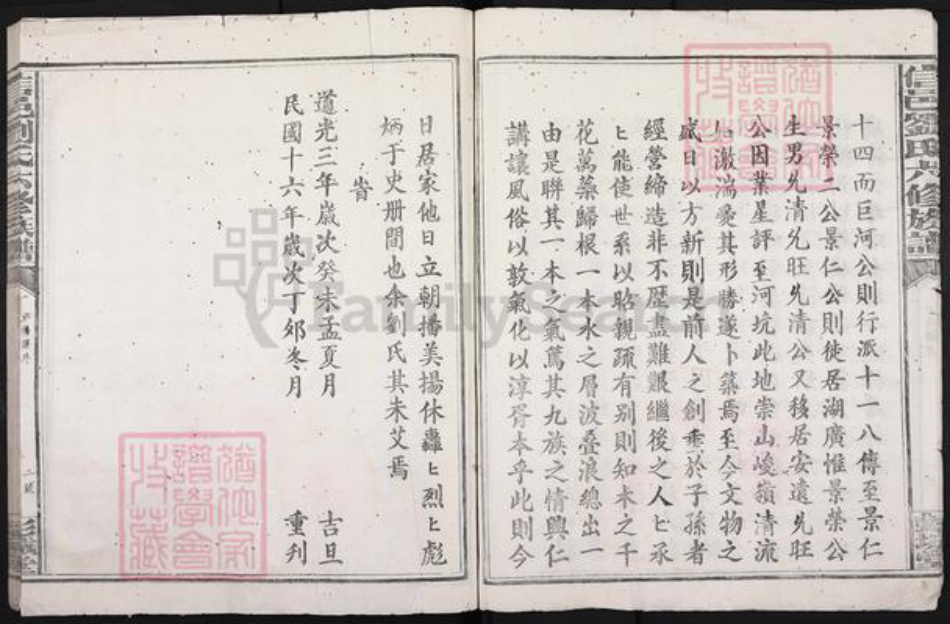 信邑劉氏六修族譜
十四而巨河公則行派十一八傳至景仁
景榮二公景仁公則徙居湖廣惟景榮公
生男允清允旺允清公又移居安遠允旺
公因業星評至河坑此地崇山峻嶺清流
激湍愛其形勝遂卜築焉至今文物之
盛日以方新則是前人之創垂於子孫者
經營締造非不歷盡難艱繼後之人匕承
匕能使世系以昭親疏有別則知木之千
花萬蕊歸根一本水之層波叠浪總出一
由是聯其一本之氣篤其九族之情興仁
講讓風俗以敦氣化以淳胥本乎此則今
日居家他日立朝播美揚休轟匕烈匕彪
炳于史册間也余劉氏其未艾焉
旹
道光三年歲次癸未孟夏月 吉旦
民國十六年歲次丁卯冬月 重刋
信邑劉氏六修族譜
彭城堂
猶他家譜學會收藏
猶他家譜學會收藏
FamilySearch